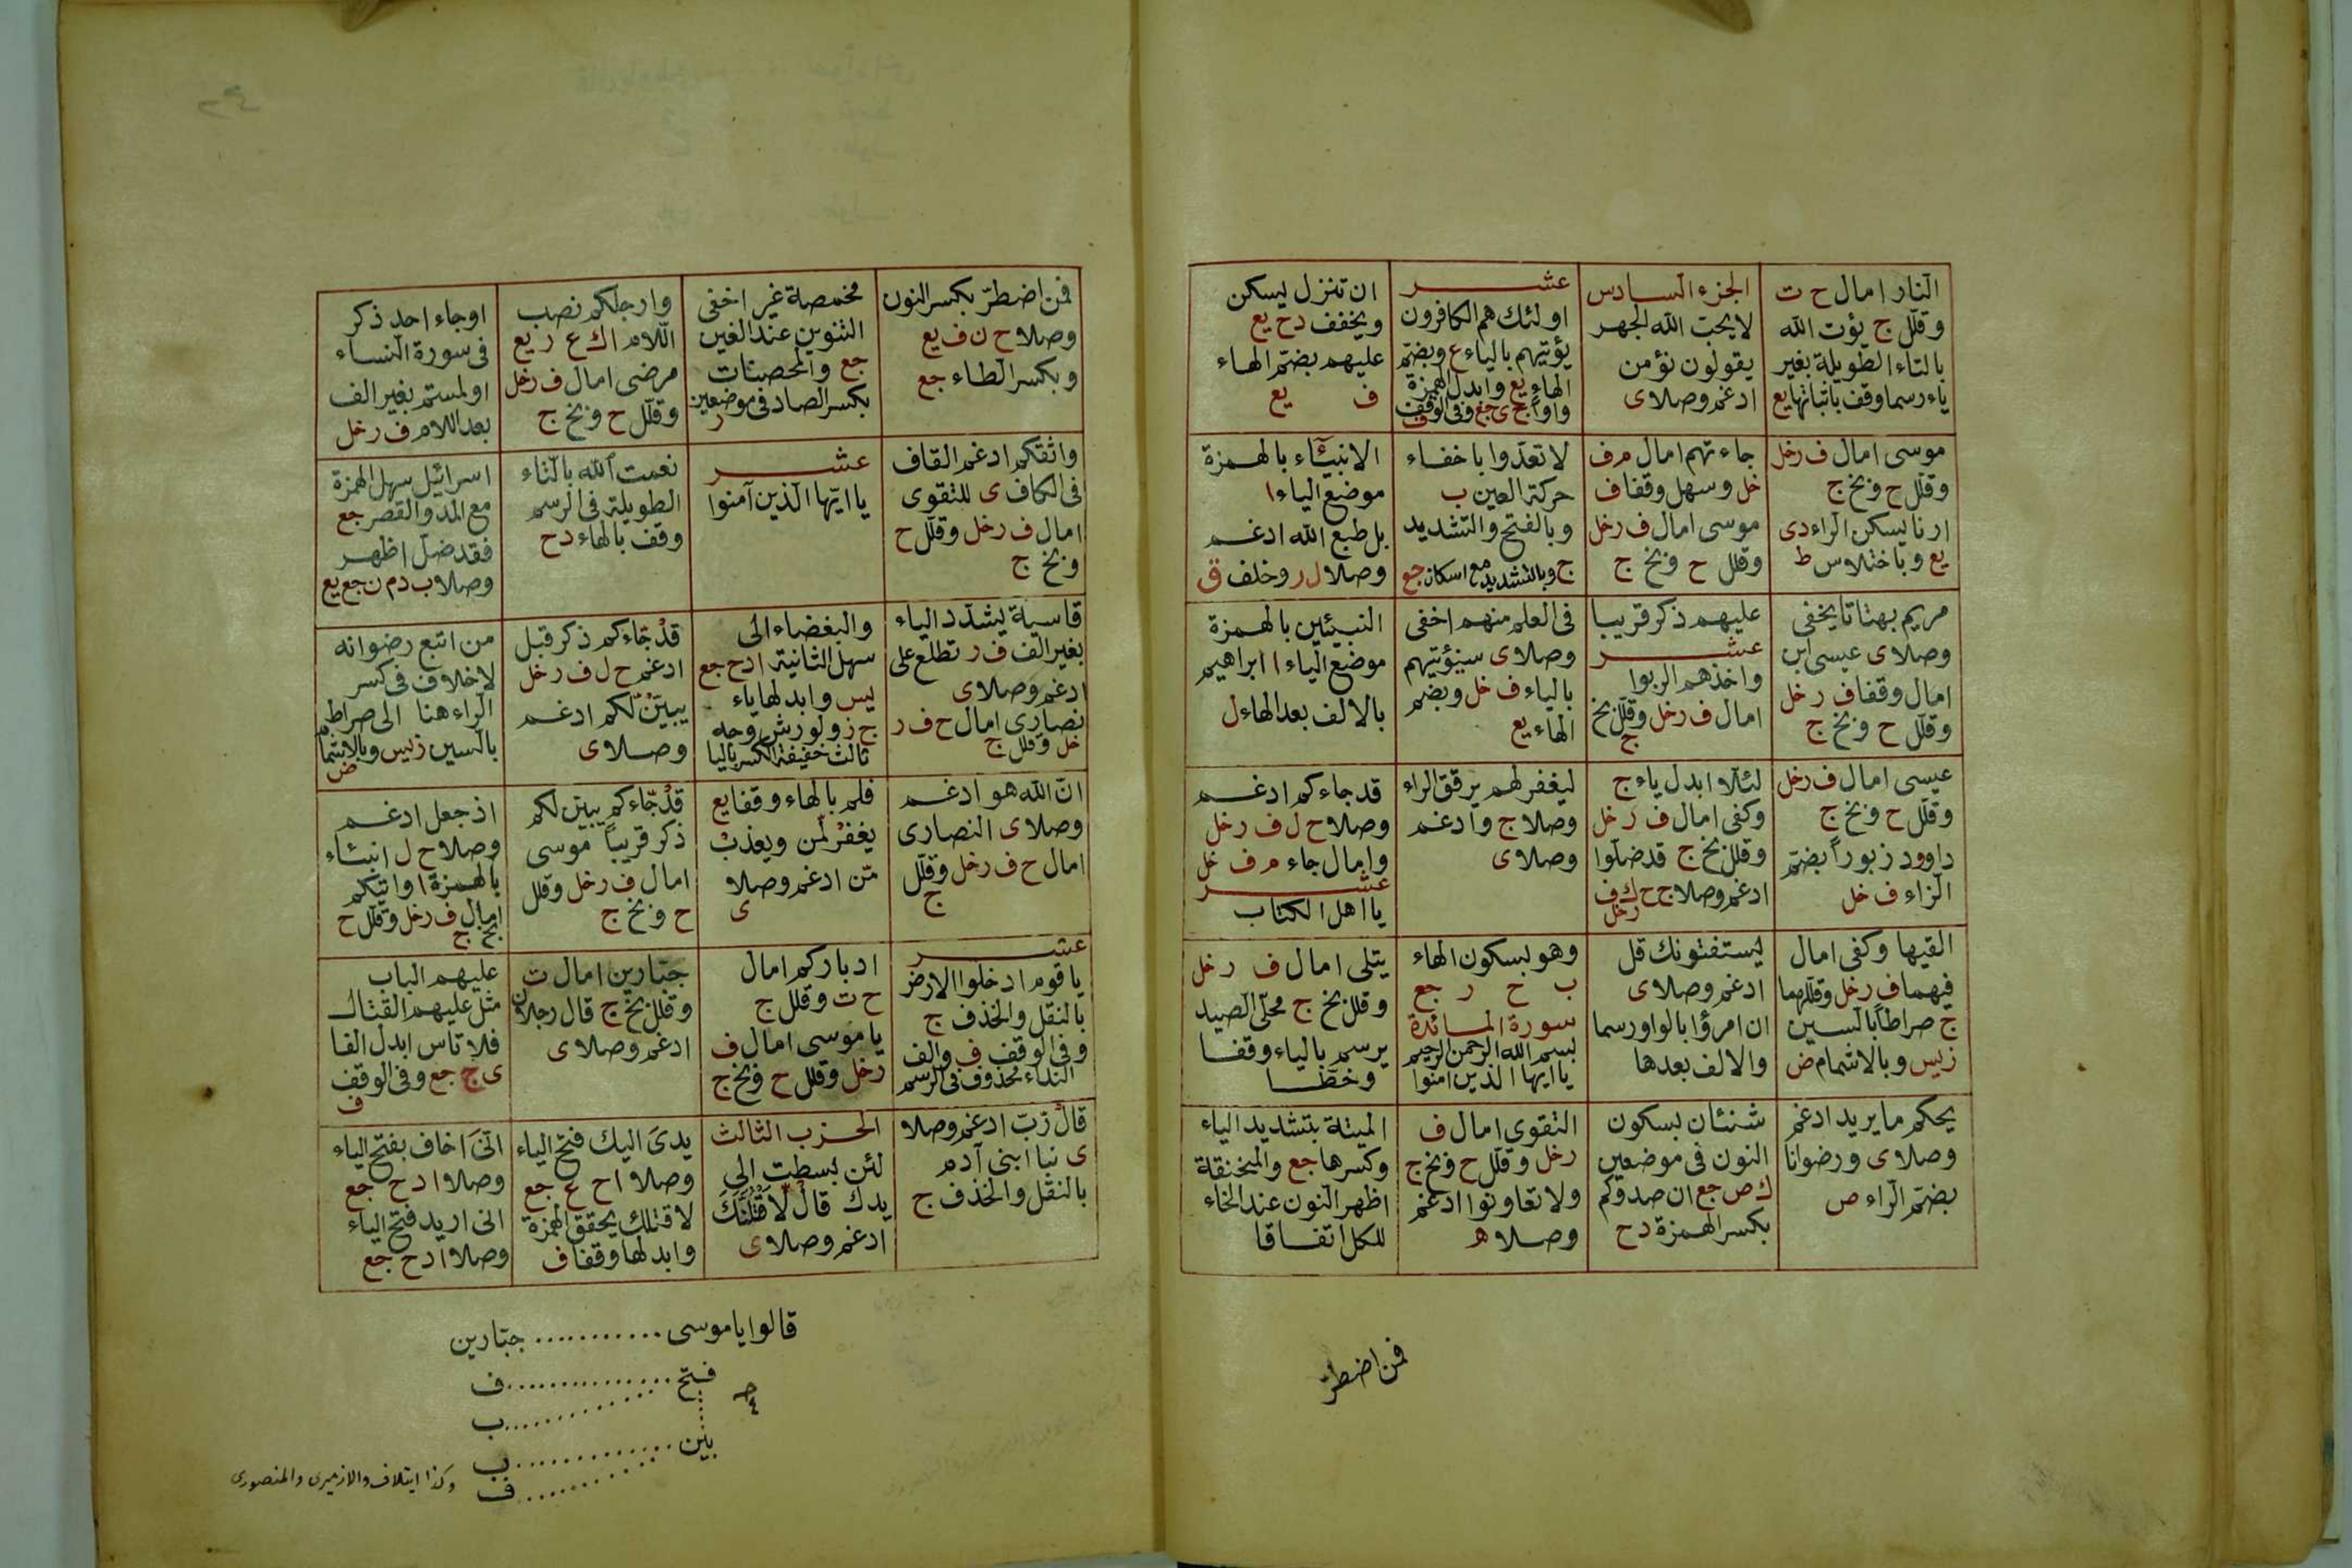 النار امال ح ت
وقلل ج يؤت الله
بالتاء الطويلة بغير
ياء رسما وقف باثباتها يع
الجزء السادس
لا يحب الله الجهر
يقولون نؤمن
ادغم وصلا ى
عشر
اولئك هم الكافرون
يؤتيهم بالياء ع وبضم
الهاء يع وابدل الهمزة
واوا ج ى جع وفى الوقف ف
ان تنزل يسكن
ويخفف د ح يع
عليهم بضم الهاء
ف يع
موسى امال ف ر خل
وقلل ح وبخ ج
ارنا يسكن الراء د ى
يع وباختلاس ط
جاءتهم امال م ف
خل وسهل وقفا ف
موسى امال ف ر خل
وقلل ح وبخ ج
لا تعدوا باخفاء
حركة العين ب
وبالفتح والتشديد
ج وبالتشديد مع اسكان جع
الانبيٓاء بالهمزة
موضع الياء ا
بل طبع الله ادغم
وصلا ل ر وخلف ق
مريم بهتانا يخفى
وصلا ى عيسى ابن
امال وقفا ف ر خل
وقلل ح وبخ ج
عليهم ذكر قريبا
عشر
واخذهم الربوا
امال ف ر خل وقلل بخ
ج
فى العلم منهم اخفى
وصلا ى سيؤتيهم
بالياء ف خل وبضم
الهاء يع
النبيئين بالهمزة
موضع الياء ا ابراهيم
بالالف بعد الهاء ل
عيسى امال ف ر خل
وقلل ح وبخ ج
داوود زبوراً بضم
الزاء ف خل
لئلا ابدل ياء ج
وكفى امال ف ر خل
وقلل بخ ج قد ضلوا
ادغم وصلا ج ح ك ف
ر خل
ليغفر لهم يرقق الراء
وصلا ج وادغم
وصلا ى
قد جاءكم ادغم
وصلا ح ل ف ر خل
وامال جاء م ف خل
عشر
يا اهل الكتاب
القيها وكفى امال
فيهما ف ر خل وقللهما
ج صراطاً بالسين
ز يس وبالاشمام ض
يستفتونك قل
ادغم وصلا ى
ان امرؤا بالواو رسما
والالف بعدها
وهو بسكون الهاء
ب ح ر جع
سورة المائدة
بسم الله الرحمن الرحيم
يا ايها الذين امنوا
يتلى امال ف ر خل
وقلل بخ ج محلى الصيد
يرسم بالياء وقفا
وخطا
يحكم ما يريد ادغم
وصلا ى ورضوانا
بضم الراء ص
شنئان بسكون
النون فى موضعين
ك ص جع ان صدوكم
بكسر الهمزة د ح
التقوى امال ف
ر خل وقلل ح وبخ ج
ولا تعاونوا ادغم
وصلا ه
الميتة بتشديد الياء
وكسرها جع والمنخنقة
اظهر النون عند الخاء
للكل اتفاقا
فمن اضطر
فمن اضطر بكسر النون
وصلا ح ن ف يع
وبكسر الطاء جع
مخمصة غير اخفى
التنوين عند الغين
جع والمحصنات
بكسر الصاد فى موضعين
ر
وارجلكم نصب
اللام ا ك ع ر يع
مرضى امال ف ر خل
وقلل ح وبخ ج
او جاء احد ذكر
فى سورة النساء
او لمستم بغير الف
بعد اللام ف ر خل
واثقكم ادغم القاف
فى الكاف ى للتقوى
امال ف ر خل وقلل ح
وبخ ج
عشر
يا ايها الذين آمنوا
نعمت الله بالتاء
الطويلة فى الرسم
وقف بالهاء د ح
اسرائيل سهل الهمزة
مع المد والقصر جع
فقد ضل اظهر
وصلا ب د م ن جع يع
قاسية يشدد الياء
بغير الف ف ر تطلع على
ادغم وصلا ى
نصارى امال ح ف ر
خل وقلل ج
والبغضاء الى
سهل الثانية ا د ح جع
يس وابدلها ياء
ج ز ولورش وجه
ثالث خفيفة الكسر بالياء
قد جاءكم ذكر قبل
ادغم ح ل ف ر خل
يبين لكم ادغم
وصلا ى
من اتبع رضوانه
لا خلاف فى كسر
الراء هنا الى صراط
بالسين ز يس وبالاشمام
ض
ان الله هو ادغم
وصلا ى النصارى
امال ح ف ر خل وقلل
ج
فلم بالهاء وقفا يع
يغفر لمن ويعذب
من ادغم وصلا
ى
قد جاءكم يبين لكم
ذكر قريباً موسى
امال ف ر خل وقلل
ح وبخ ج
اذ جعل ادغم
وصلا ح ل انبئاء
بالهمزة ا واتيكم
امال ف ر خل وقلل ح
بخ ج
عشر
يا قوم ادخلوا الارض
بالنقل والحذف ج
وفى الوقف ف والف
النداء محذوف فى الرسم
ادباركم امال
ح ت وقلل ج
يا موسى امال ف
ر خل وقلل ح وبخ ج
جبارين امال ت
وقلل بخ ج قال رجلان
ادغم وصلا ى
عليهم الباب
مثل عليهم القتال
فلا تاس ابدل الفا
ى ج جع وفى الوقف
ف
قال رب ادغم وصلا
ى نبا ابنى آدم
بالنقل والحذف ج
الحزب الثالث
لئن بسطت الى
يدك قال لاقتلنك
ادغم وصلا ى
يدى اليك فتح الياء
وصلا ا ح ع جع
لاقتلك يحقق الهمزة
وابدلها وقفا ف
انى اخاف بفتح الياء
وصلا ا د ح جع
انى اريد فتح الياء
وصلا ا د ح جع
قالوا ياموسى ........... جبارين
فتح ............... ف
............ ب
بين ............. ب
............ ف
وكذا ايتلاف والازميرى والمنصورى